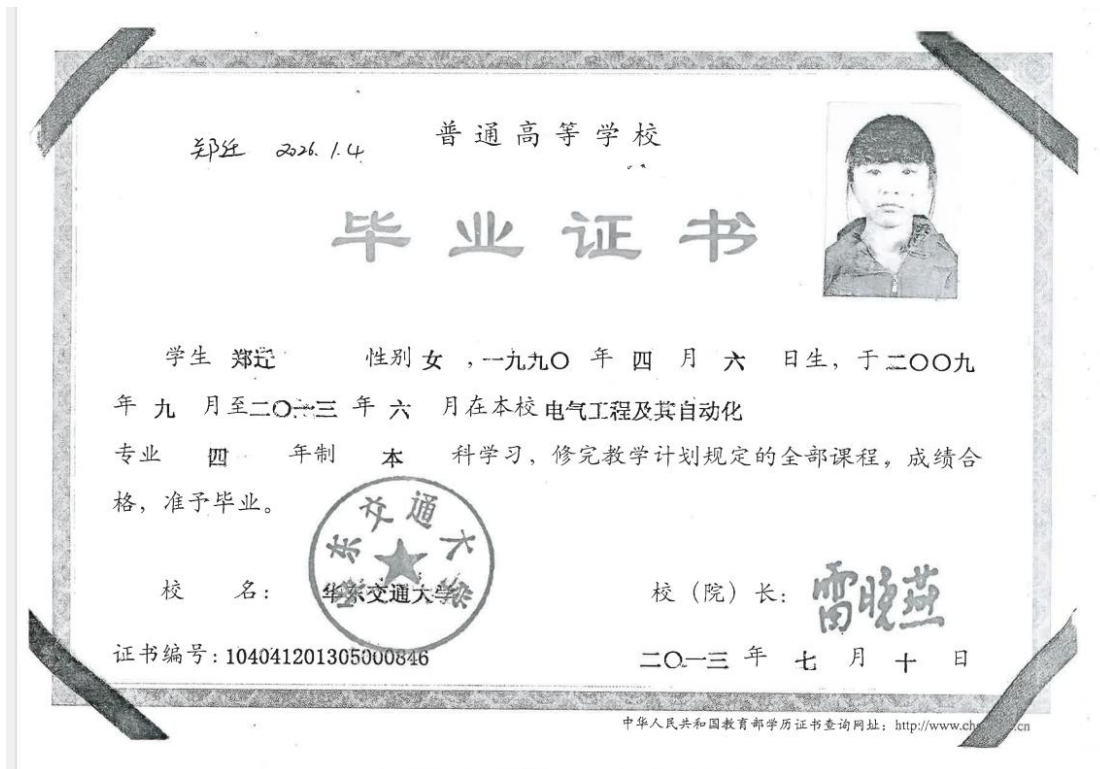 郑迋 2026.1.4
普通高等学校
毕业证书
学生 郑迋 性别 女 ,一九九〇 年 四 月 六 日生, 于 二〇〇九
年 九 月至 二〇一三 年 六 月在本校 电气工程及其自动化
专业 四 年制 本 科学习, 修完教学计划规定的全部课程, 成绩合
格, 准予毕业。
华东交通大学
校 名: 华东交通大学
校(院)长: 雷晓燕
证书编号: 104041201305000846
二〇一三 年 七 月 十 日
中华人民共和国教育部学历证书查询网址: http://www.ch .cn